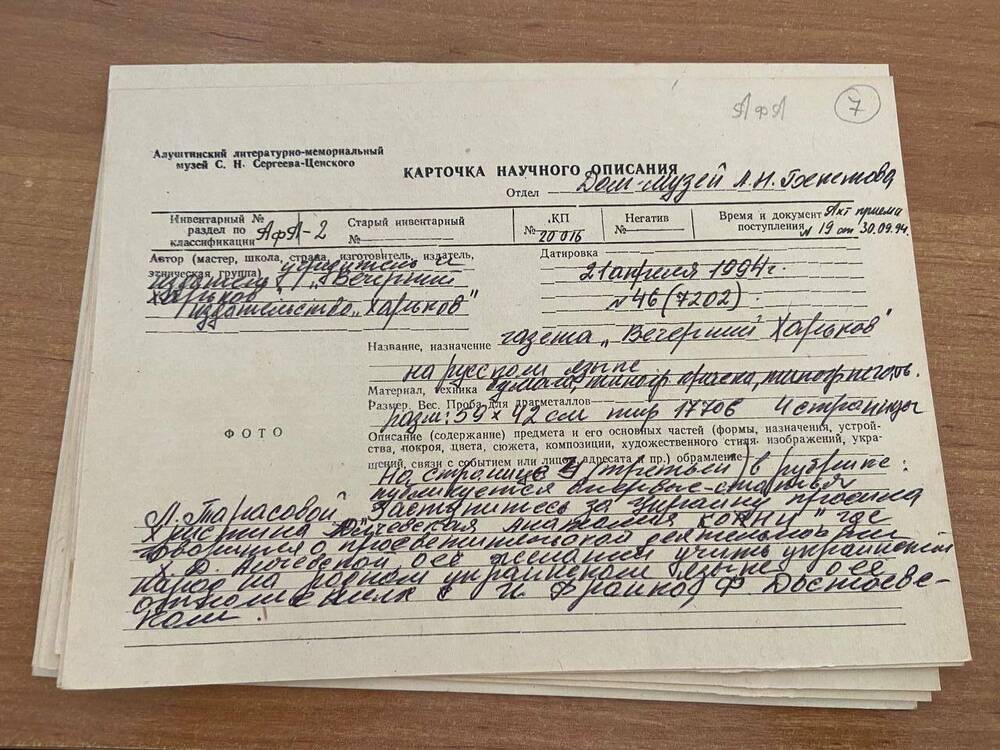 АфА 7
Алуштинский литературно-мемориальный
музей С. Н. Сергеева-Ценского
КАРТОЧКА НАУЧНОГО ОПИСАНИЯ
Отдел Дом-музей А.Н. Бекетова
Инвентарный №
раздел по
классификации АфА-2
Старый инвентарный
№
КП
№ 20016
Негатив
№
Время и документ Акт приема
поступления № 19 от 30.09.94.
Автор (мастер, школа, страна, изготовитель, издатель,
этническая группа) учредитель и
издатель "Вечерний
Харьков"
издательство "Харьков"
Датировка
21 апреля 1994 г.
№ 46 (7202)
Название, назначение газета "Вечерний Харьков"
на русском языке
Материал, техника бумага, типогр краска, типогр печать.
Размер. Вес. Проба для драгметаллов
разм: 59 х 42 см тир 17706 4 страницы
ФОТО
Описание (содержание) предмета и его основных частей (формы, назначения, устрой-
ства, покроя, цвета, сюжета, композиции, художественного стиля изображений, укра-
шений, связи с событием или лицом, адресата и пр.) обрамление
На странице 3 (третьей) в рубрике:
публикуется впервые статья
Л. Тарасовой "Заступитесь за Украину просила
Христина Алчевская Анатомия корни" где
говорится о просветительской деятельности
Х.Д. Алчевской о ее желании учить украинский
народ на родном украинском языке о ее
отношениях с И. Франко, Ф. Достоевс-
ким.